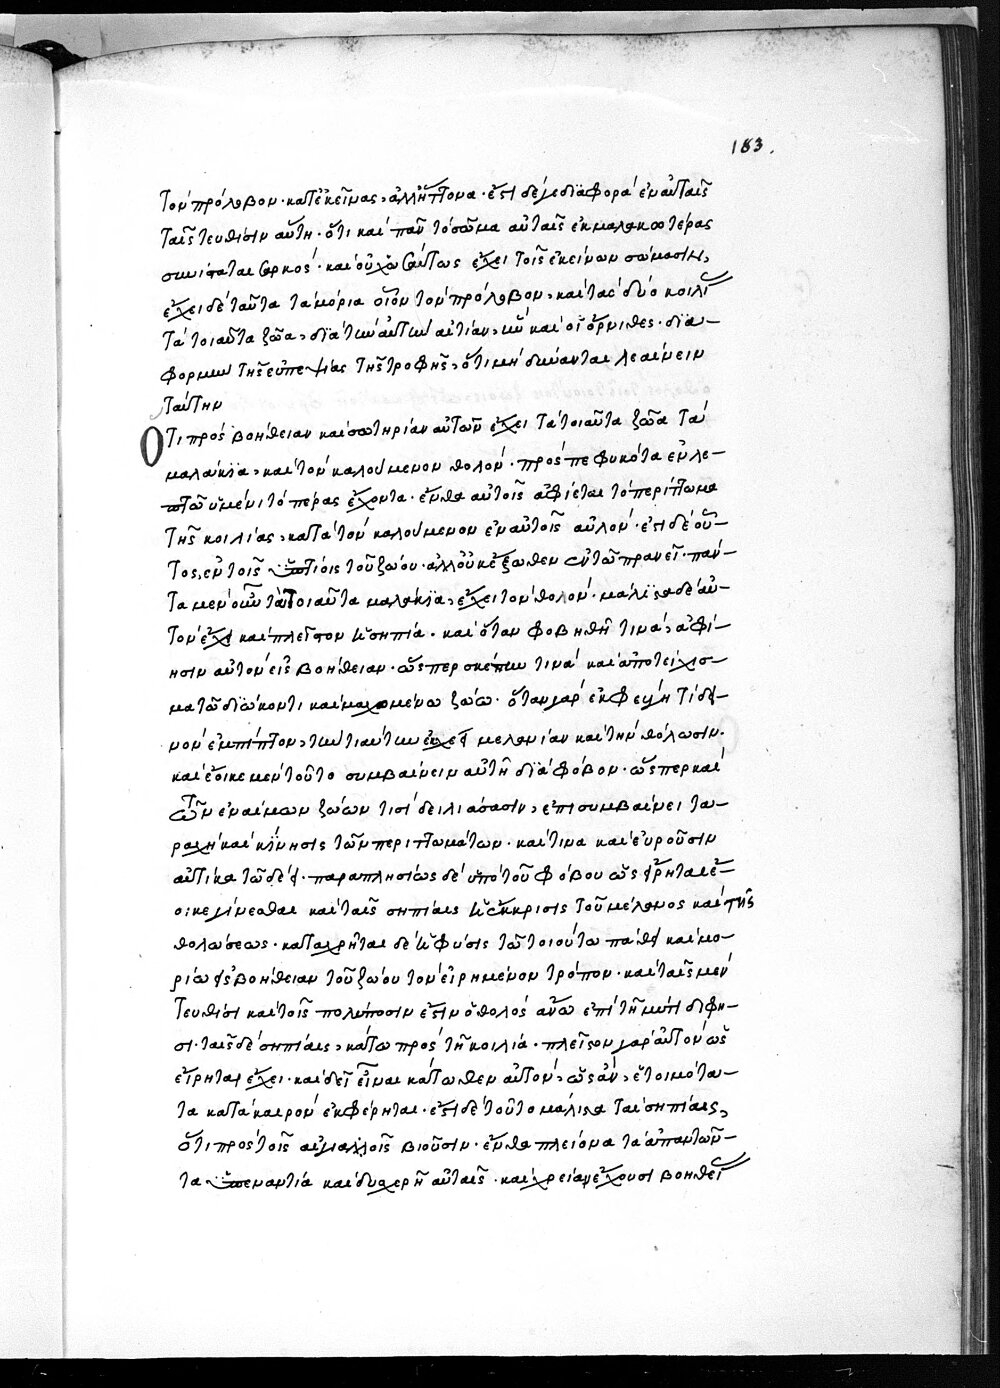 183.
τὸν πρόλοβον· κατ' ἐκείνας, ἀλλ' ἥττονα· ἔστι δέ γε διαφορὰ ἐν αὐταῖς
ταῖς τευθίσιν αὕτη· ὅτι καὶ πᾶν τὸ σῶμα αὐταῖς ἐκ μαλακωτέρας
συνίσταται σαρκός· καὶ οὐχ ὡσαύτως ἔχει τοῖς ἐκείνων σώμασιν,
ἔχει δὲ ταῦτα τὰ μόρια οἷον τὸν πρόλοβον, καὶ τὰς δύο κοιλί
τὰ τοιαῦτα ζῶα, διὰ τὴν αὐτὴν αἰτίαν, ἣν καὶ οἱ ὄρνιθες· διὰ
φορμην τῆς εὐπεψίας τῆς τροφῆς, ὅτι μὴ δύνανται λεαίνειν
ταύτην
Ὅτι πρὸς βοήθειαν καὶ σωτηρίαν αὐτῶν ἔχει τὰ τοιαῦτα ζῶα τὰ
μαλάκια, καὶ τὸν καλούμενον θολόν· προσπεφυκότα ἐν λε-
πτῶ ὑμένι τὸ πέρας ἔχοντα· ἔνθα αὐτοῖς ἀφίεται τὸ περίττωμα
τῆς κοιλίας, κατὰ τὸν καλούμενον ἐν αὐτοῖς αὐλόν· ἔστι δὲ οὗ-
τος, ἐν τοῖς ὑπτίοις τοῦ ζώου· ἀλλ' οὐκ ἔξωθεν ἐν τῶ πρανεῖ· πάν-
τα μὲν οὖν τὰ τοιαῦτα μαλάκια, ἔχει τὸν θολόν· μάλιστα δὲ αὐ-
τὸν ἔχει καὶ πλεῖστον ἡ σηπία· καὶ ὅταν φοβηθῆ τινα, ἀφί-
ησιν αὐτὸν εἰς βοήθειαν· ὥσπερ σκέπην τινὰ καὶ ἀποτείχισ-
μα τῶ διώκοντι καὶ μαχομένω ζώω· ὅταν γὰρ ἐκφεύγη τι δει-
νὸν ἐμπίπτον, τὴν τιαύτην ἐκχεῖ μελανίαν καὶ τὴν θόλωσιν·
καὶ ἔοικε μὲν τοῦτο συμβαίνειν αὐτῆ διὰ φόβον· ὥσπερ καὶ
τῶν ἐναίμων ζώων τισὶ δειλιάσασιν, ἐπισυμβαίνει τα-
ραχὴ καὶ κίνησις τῶν περιττωμάτων· καί τινα καὶ ἐυροῦσιν
αὐτίκα τῶ δέει· παραπλησίως δὲ ὑπὸ τοῦ φόβου ὡς εἴρηται ἔ-
οικε γίνεσθαι καὶ ταῖς σηπίαις ἡ ἔκκρισις τοῦ μέλανος καὶ τῆς
θολώσεως· καταχρῆται δὲ ἡ φύσις τῶ τοιούτω πάθει καὶ μο-
ρίω εἰς βοήθειαν τοῦ ζώου τὸν εἰρημένον τρόπον· καὶ ταῖς μὲν
τευθίσι καὶ τοῖς πολύποσιν ἐστὶν ὁ θολὸς ἄνω ἐπὶ τῆ μύτιδι φη-
σί· ταῖς δὲ σηπίαις, κάτω πρὸς τῆ κοιλία· πλεῖστον γὰρ αὐτὸν ὡς
εἴρηται ἔχει· καὶ δεῖ εἶναι κάτωθεν αὐτόν, ὡς ἂν, ἑτοιμότα-
τα κατὰ καιρὸν ἐκφέρηται· ἔστι δὲ τοῦτο μάλιστα ταῖς σηπίαις,
ὅτι πρὸς τοῖς αἰγιαλοῖς βιοῦσιν· ἔνθα πλείονα τὰ ἀπαντῶν-
τα ὑπεναντία καὶ δυσχερῆ αὐταῖς· καὶ χρείαν ἔχουσι βοηθεί